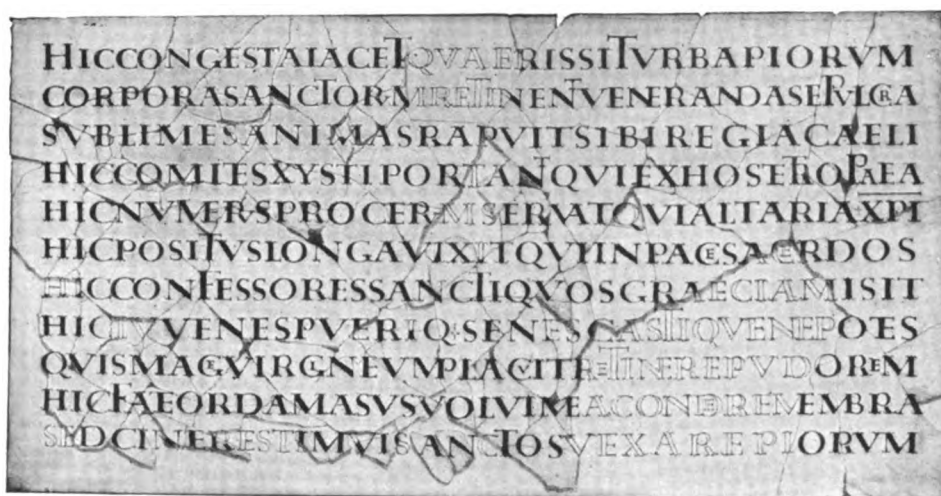 HICCONGESTAIACETQVAERISSITVRBAPIORVM
CORPORASANCTORVMRETINENTVENERANDASEPVLCRA
SVBLIMESANIMASRAPVITSIBIREGIACAELI
HICCOMITESXYSTIPORTANTQVIEXHOSTETROPAEA
HICNVMERVSPROCERVMSERVATQVIALTARIAXPI
HICPOSITVSLONGAVIXITQVIINPACESACERDOS
HICCONFESSORESSANCTIQVOSGRAECIAMISIT
HICIVVENESPVERIQ·SENESCASTIQVENEPOTES
QVISMAGEVIRGINEVMPLACVITRETINEREPVDOREM
HICFATEORDAMASVSVOLVIMEACONDEREMEMBRA
SEDCINERESTIMVISANCTOSVEXAREPIORVM